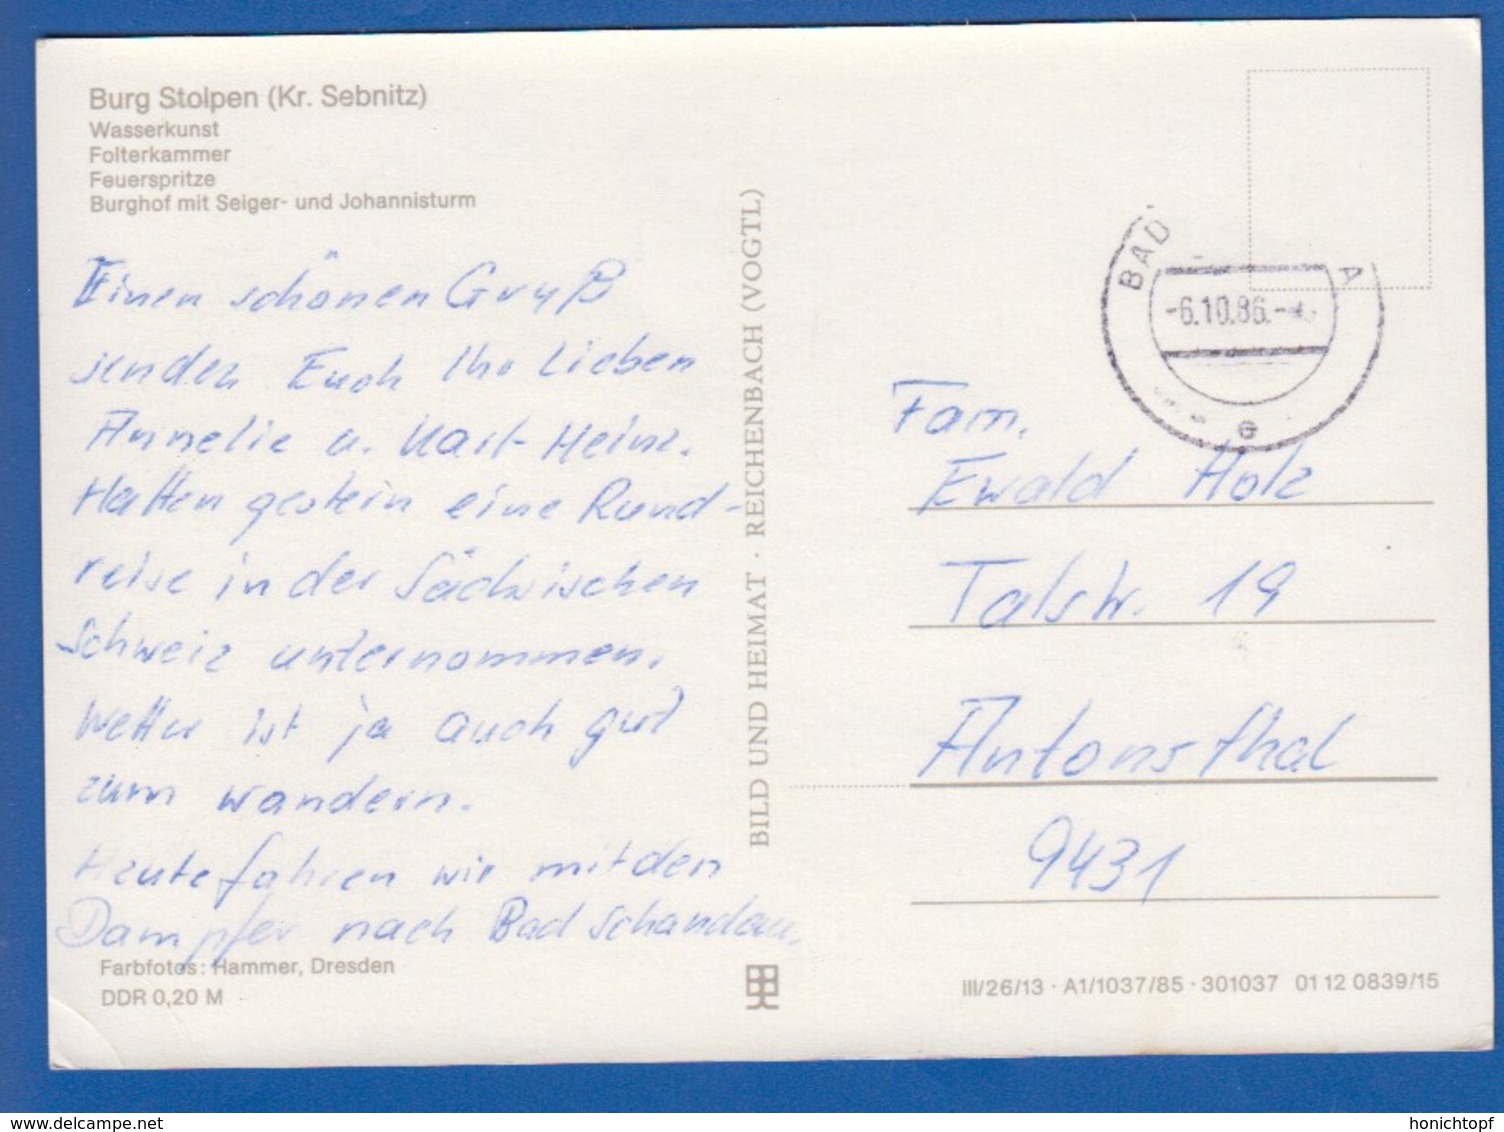 Burg Stolpen (Kr. Sebnitz)
Wasserkunst
Folterkammer
Feuerspritze
Burghof mit Seiger- und Johannisturm
Einen schönen Gruß
senden Euch Ihr Lieben
Annelie u. Karl-Heinz.
Hatten gestern eine Rund-
reise in der Sächsischen
Schweiz unternommen.
Wetter ist ja auch gut
zum wandern.
Heute fahren wir mit den
Dampfer nach Bad Schandau.
Farbfotos: Hammer, Dresden
DDR 0,20 M
BILD UND HEIMAT · REICHENBACH (VOGTL)
BAD A
-6.10.86.-
G
Fam.
Ewald Holz
Talstr. 19
Antonsthal
9431
III/26/13 · A1/1037/85 · 301037 01 12 0839/15
delcampe.net
honichtopf